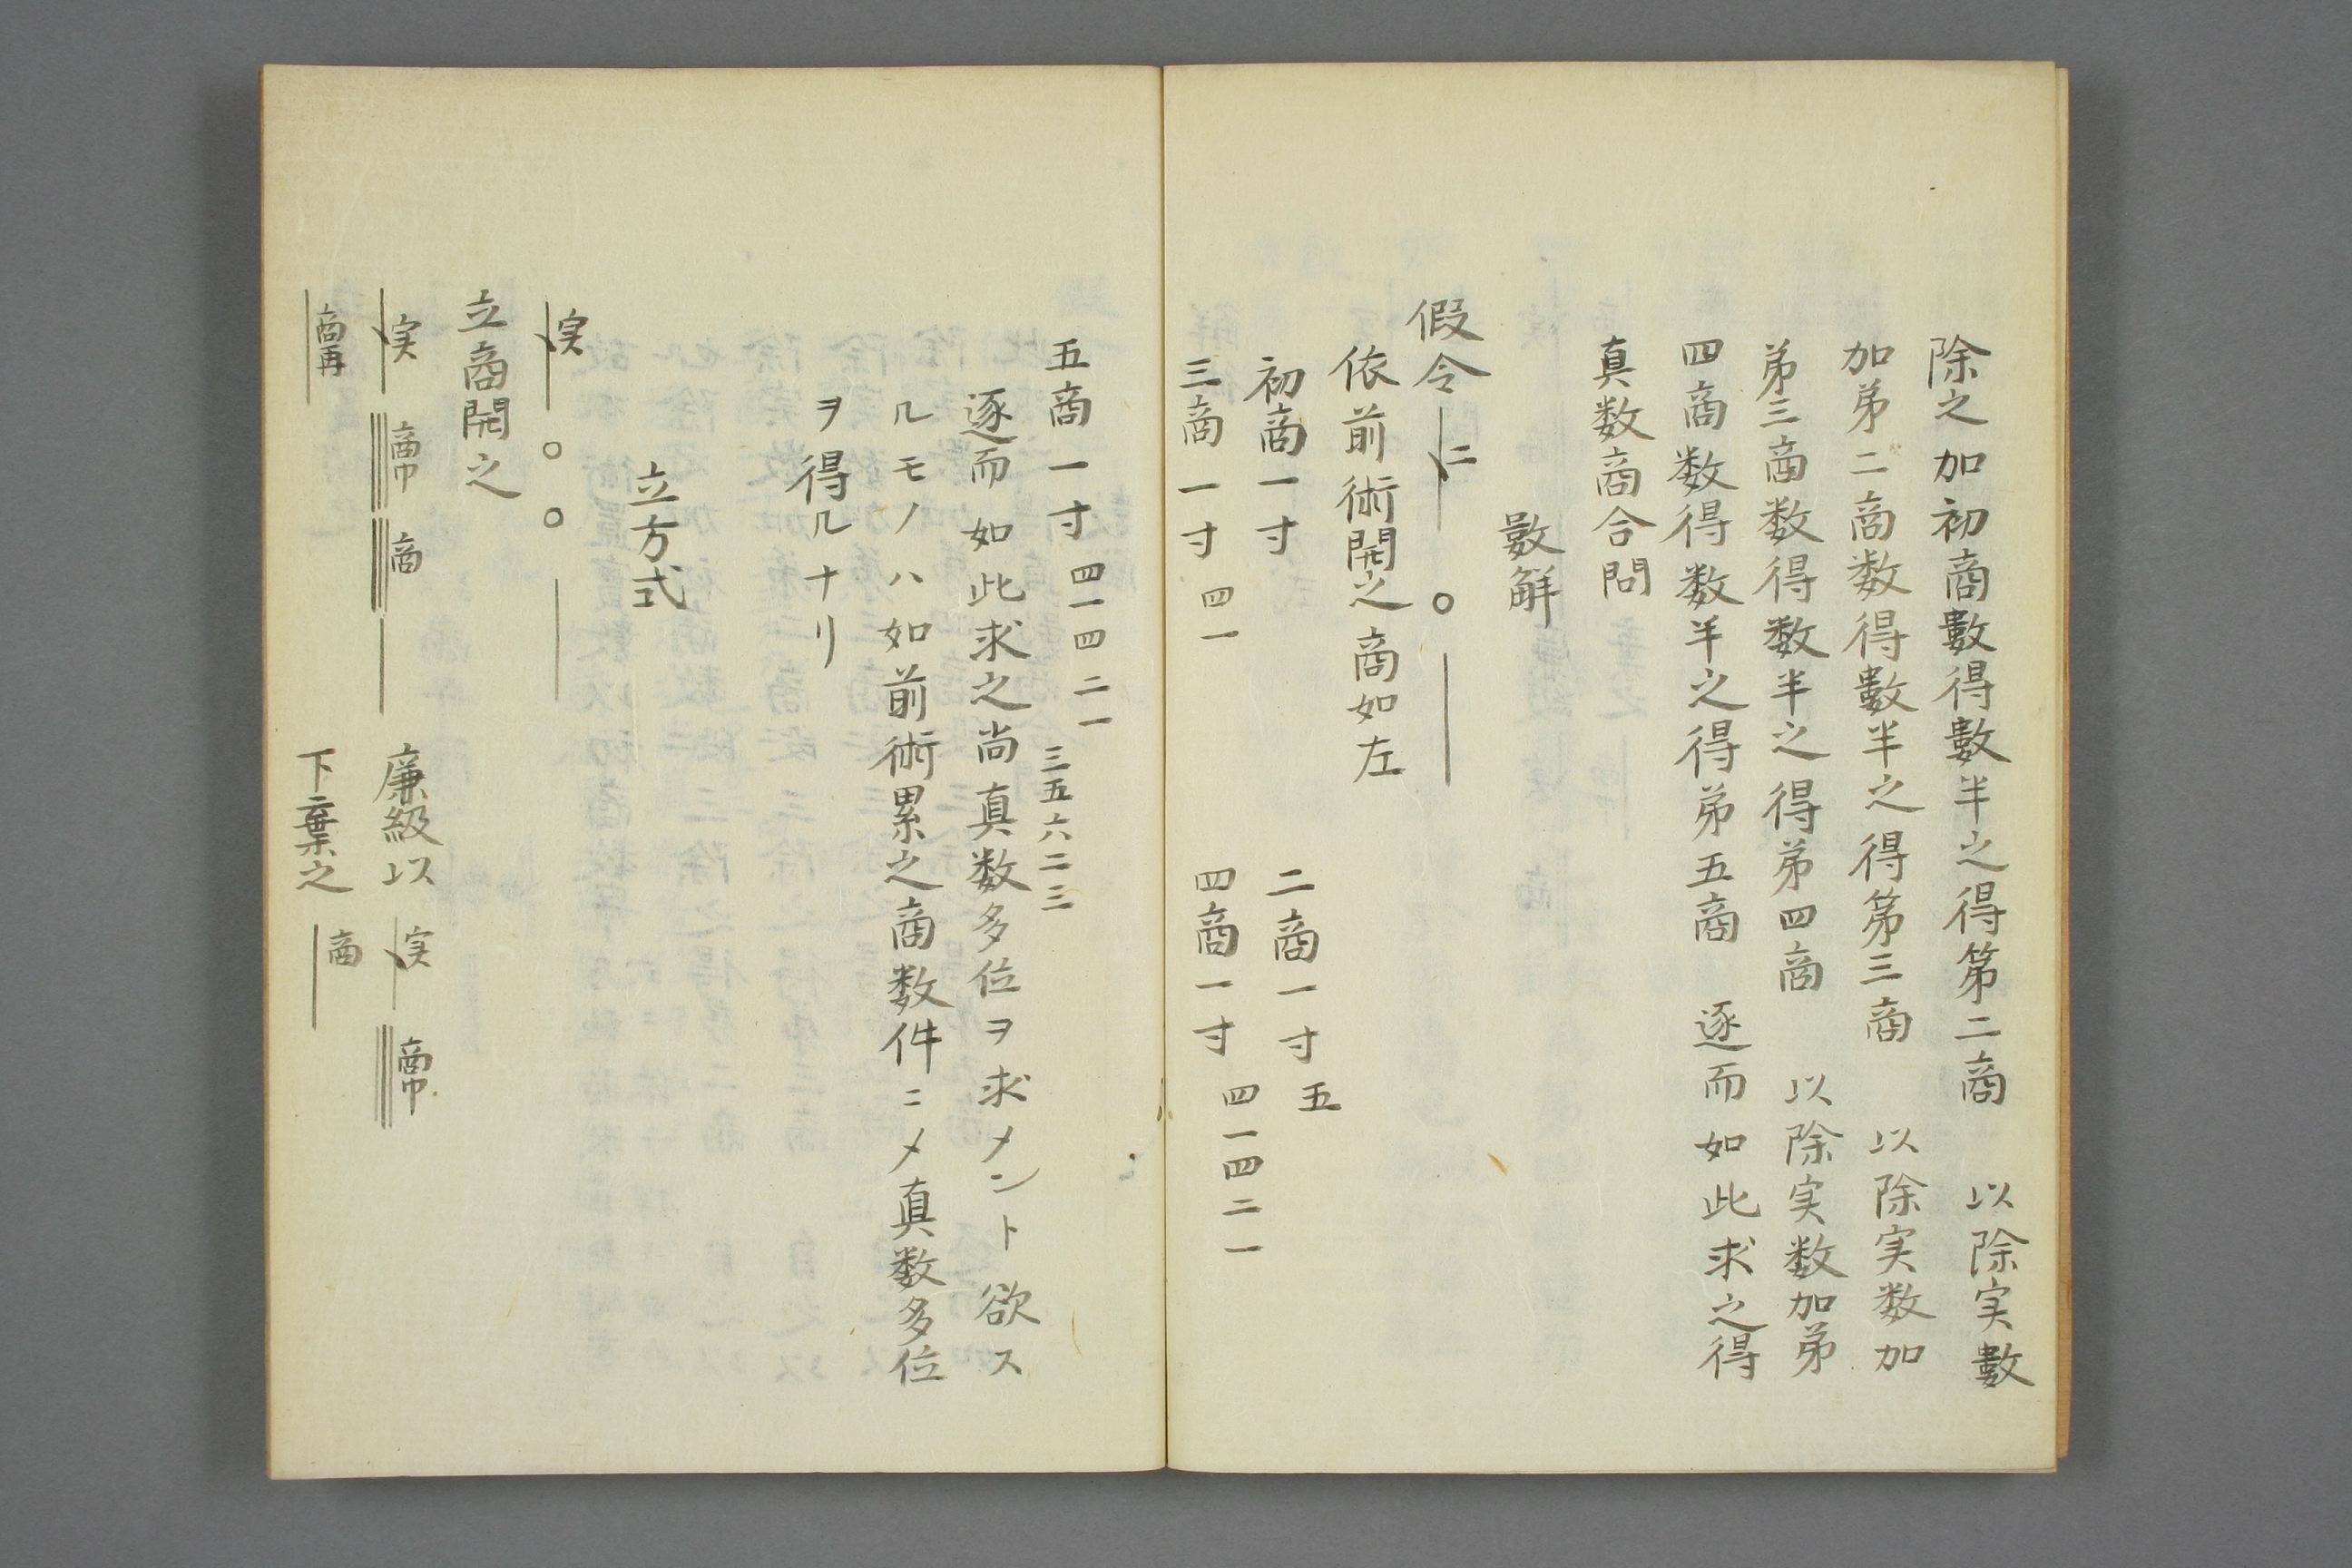 除之加初商數得數半之得第二商　以除実數
加第二商数得數半之得第三商　以除実数加
第三商数得数半之得第四商　以除実数加第
四商数得数半之得第五商　逐而如此求之得
真数商合問
數解
假令　二　〇　｜
依前術開之商如左
初商一寸　二商一寸五
三商一寸四一　四商一寸四一四二一
五商一寸四一四二一三五六二三
逐而如此求之尚真数多位ヲ求メント欲ス
ルモノハ如前術累之商数件ニメ真数多位
ヲ得ルナリ
立方式
実　〇　〇　｜
立商開之
実　商巾　商　｜　廉級以　実　商巾
商再　下棄之　商